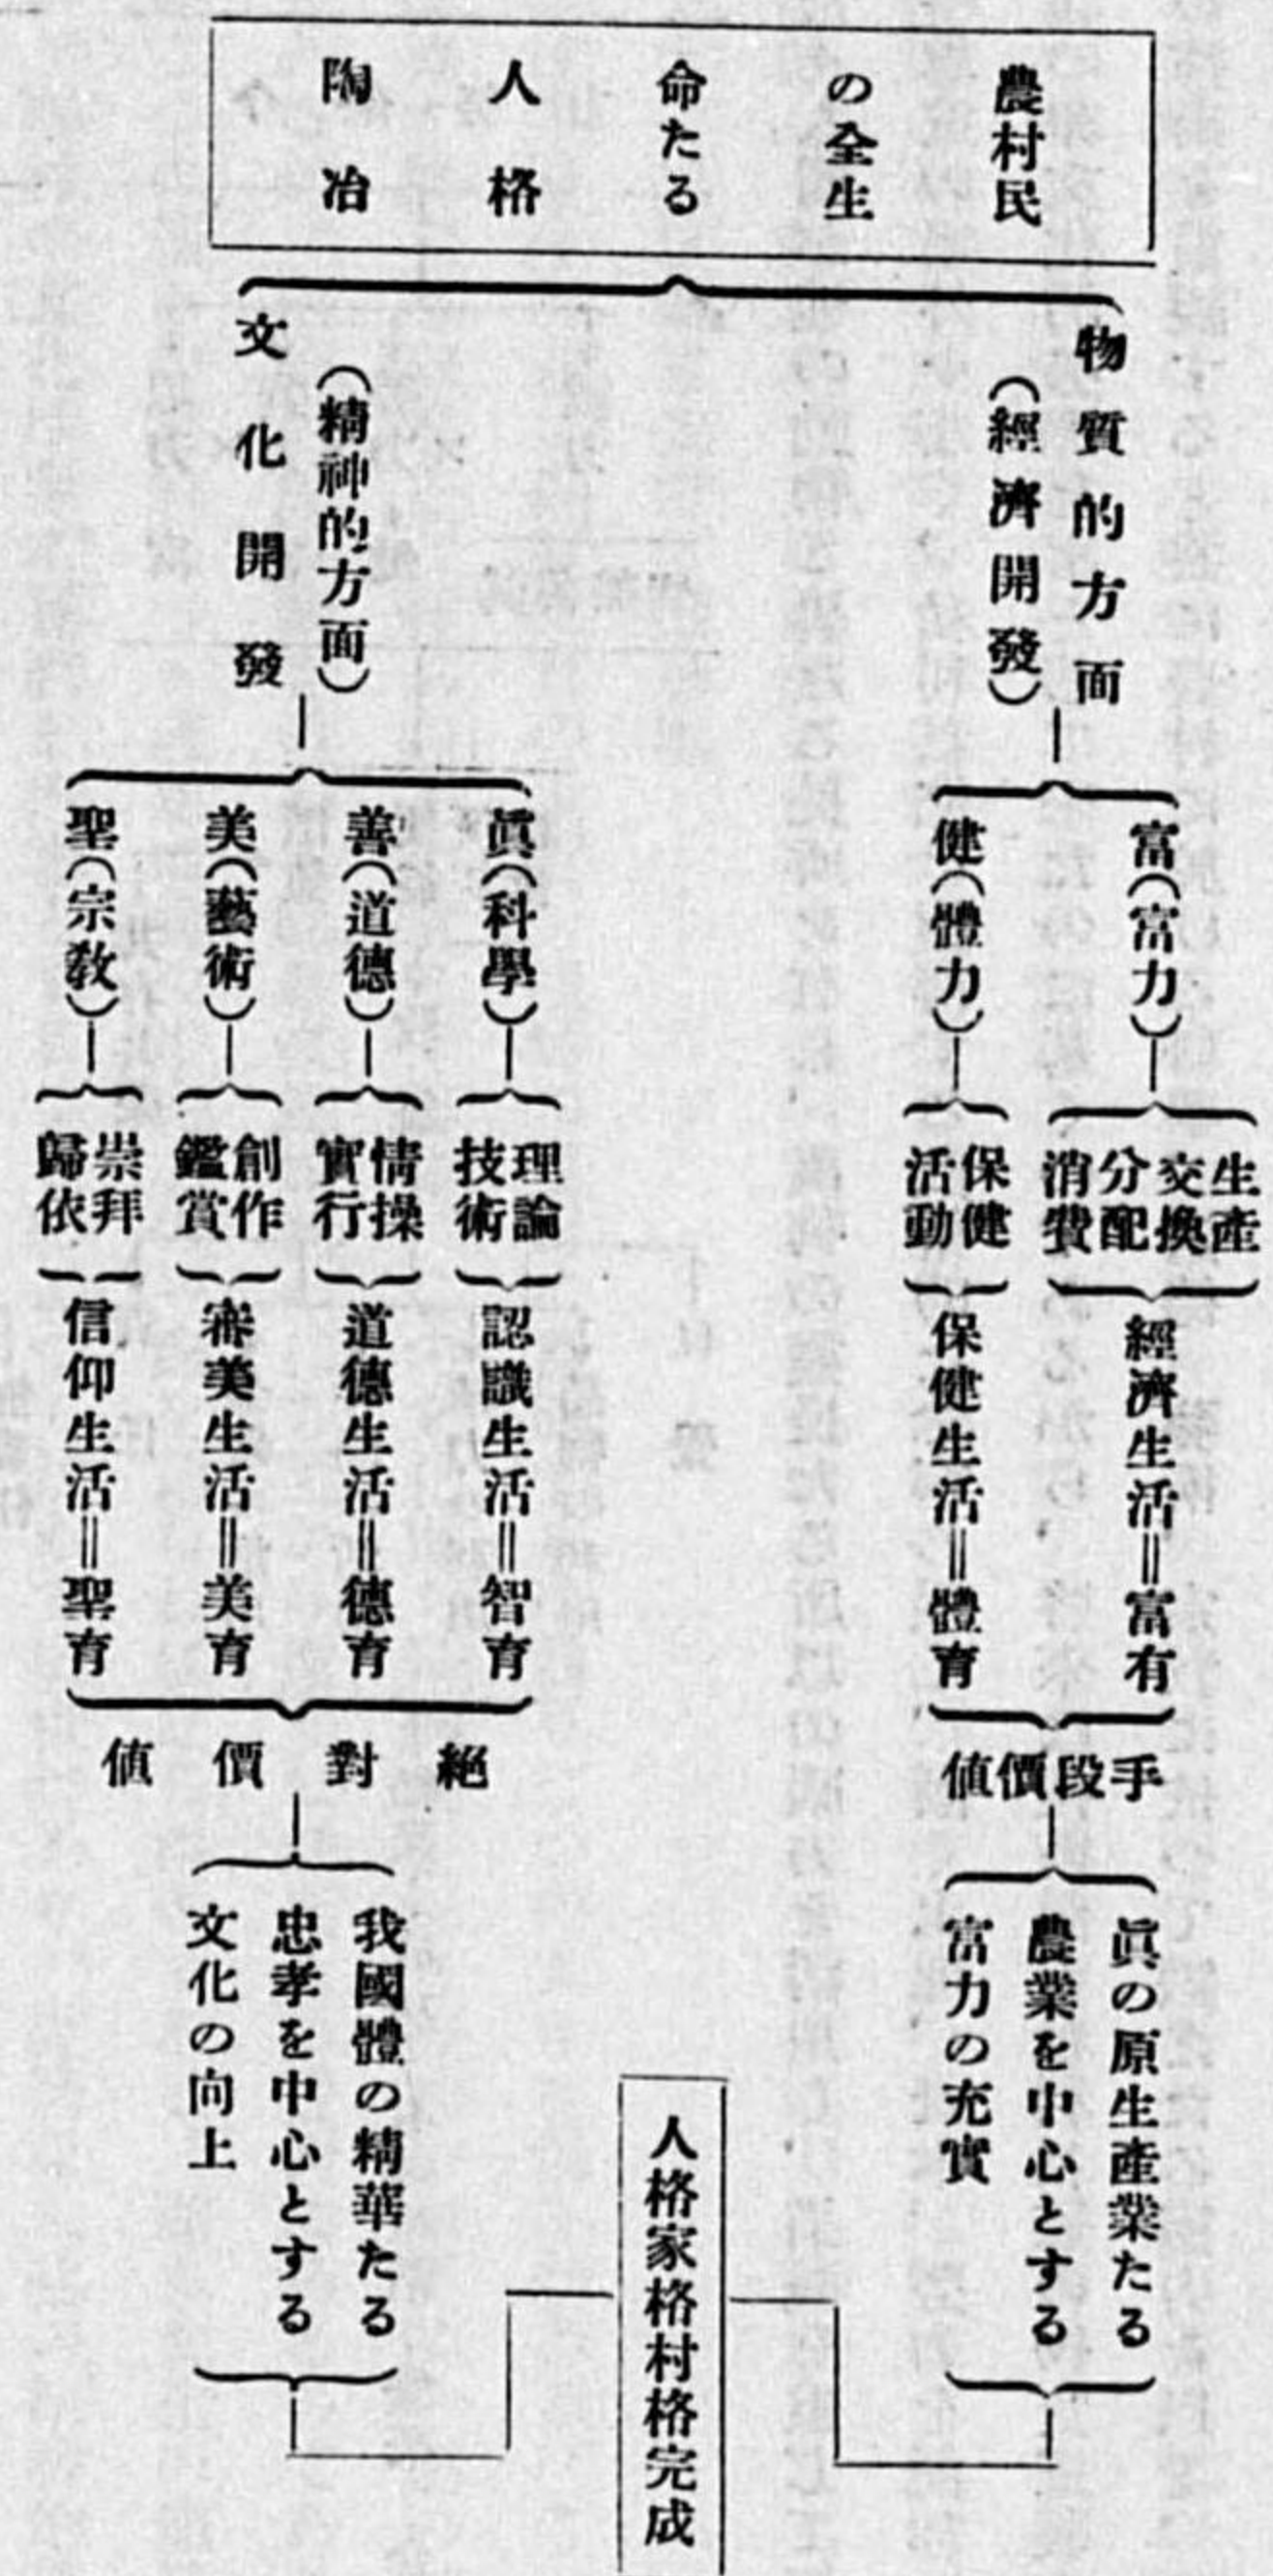 農村民
の全生
命たる
人格
陶冶
物質的方面
（經濟開發）
富（富力）
生産
交換
分配
消費
經濟生活＝富有
健（體力）
保健
活動
保健生活＝體育
手段價値
眞の原生産業たる
農業を中心とする
富力の充實
（精神的方面）
文化開發
眞（科學）
理論
技術
認識生活＝智育
善（道德）
情操
實行
道德生活＝德育
美（藝術）
創作
鑑賞
審美生活＝美育
聖（宗教）
崇拜
歸依
信仰生活＝聖育
絕對價値
我國體の精華たる
忠孝を中心とする
文化の向上
人格家格村格完成